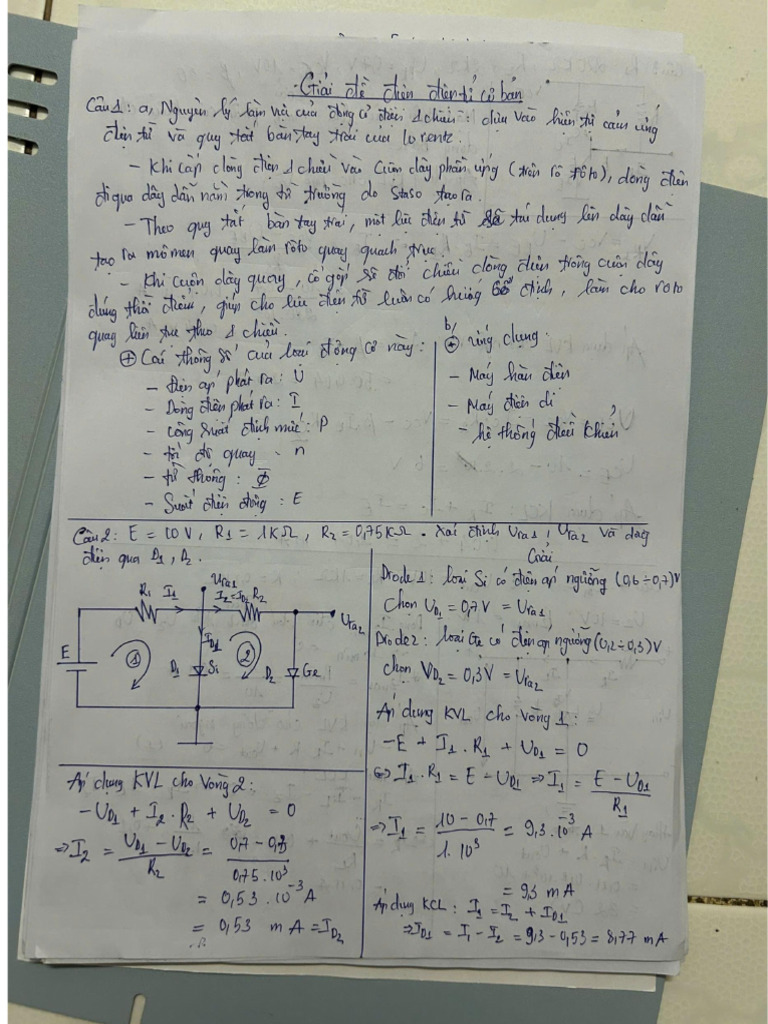 Giải đề điện điện tử cơ bản
Câu 1: a, Nguyên lý làm việc của động cơ điện 1 chiều: dựa vào hiện tử cảm ứng
điện từ và quy tắt bàn tay trái của lorentz.
- Khi cấp dòng điện 1 chiều vào Cuộn dây phần ứng (trên rô tôto), dòng điện
đi qua dây dẫn nằm trong từ trường do Stato tạo ra.
- Theo quy tắt bàn tay trái, một lực điện từ sẽ tái dụng lên dây dẫn
tạo ra mômen quay làm rôto quay quach trục.
- Khi cuộn dây quay, cổ góp sẽ đổi chiều dòng điện trong cuộn dây
đúng thời điểm, giúp cho lực điện từ luôn có hướng cố định, làm cho roto
quay liên tục theo 1 chiều.
⊕ Cái thông số của loại động cơ này:
- Điện áp phát ra: U
- Dòng điện phát ra: I
- công suất định mức: P
- tốc độ quay - n
- từ thông: Φ
- Suất điện động: E
b/
⊕ ứng dụng:
- Máy hàn điện
- Máy điện di
- hệ thống điều khiển
Câu 2: E = 10V, R1 = 1KΩ, R2 = 0,75KΩ. Xái định Ura1, Ura2 và dòng
điện qua D1, D2.
Giải
Ura1
R1 I1 I2=ID2 R2
Ura2
ID1
E
1 D1 Si 2 D2 Ge
Diode 1: loại Si có điện áp ngưỡng (0,6÷0,7)V
Chọn UD1 = 0,7V = Ura1
Diode 2: loại Ge có điện áp ngưỡng (0,2÷0,3)V
chọn VD2 = 0,3V = Ura2
Áp dụng KVL cho vòng 1:
-E + I1.R1 + UD1 = 0
⇔ I1.R1 = E - UD1 ⇒ I1 = E - UD1 / R1
⇒ I1 = 10 - 0,7 / 1.10³ = 9,3.10⁻³ A
= 9,3 mA
Áp dụng KCL: I1 = I2 + ID1
⇒ ID1 = I1 - I2 = 9,3 - 0,53 = 8,77 mA
Áp dụng KVL cho vòng 2:
-UD1 + I2.R2 + UD2 = 0
⇒ I2 = UD1 - UD2 / R2 = 0,7 - 0,3 / 0,75.10³
= 0,53.10⁻³ A
= 0,53 mA = ID2